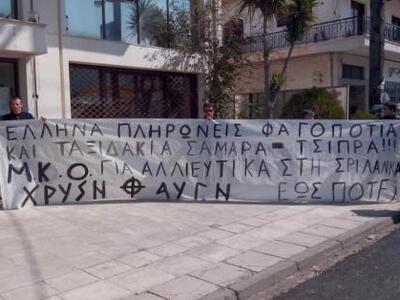 ΕΛΛΗΝΑ ΠΛΗΡΩΝΕΙΣ ΦΑΓΟΠΟΤΙΑ
ΚΑΙ ΤΑΞΙΔΑΚΙΑ ΣΑΜΑΡΑ - ΤΣΙΠΡΑ!!!
Μ.Κ.Ο. ΓΙΑ ΑΛΙΕΥΤΙΚΑ ΣΤΗ ΣΡΙΛΑΝΚΑ
ΧΡΥΣΗ ΑΥΓΗ ΕΩΣ ΠΟΤΕ;